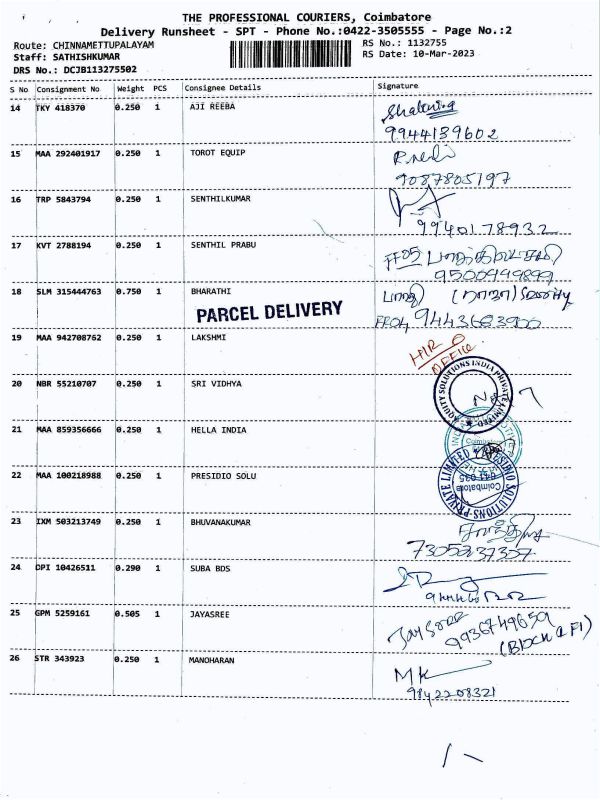 THE PROFESSIONAL COURIERS, Coimbatore
Delivery Runsheet - SPT - Phone No.:0422-3505555 - Page No.:2
Route: CHINNAMETTUPALAYAM RS No.: 1132755
Staff: SATHISHKUMAR RS Date: 10-Mar-2023
DRS No.: DCJB113275502
S No Consignment No Weight PCS Consignee Details Signature
14 TKY 418370 0.250 1 AJI REEBA
9944139602
15 MAA 292401917 0.250 1 TOROT EQUIP
9087805197
16 TRP 5843794 0.250 1 SENTHILKUMAR
9940178932
17 KVT 2788194 0.250 1 SENTHIL PRABU
9500949899
18 SLM 315444763 0.750 1 BHARATHI
PARCEL DELIVERY
19 MAA 942708762 0.250 1 LAKSHMI
OFFICE
20 NBR 55210707 0.250 1 SRI VIDHYA
EQUITY SOLUTIONS INDIA PRIVATE LIMITED
21 MAA 859356666 0.250 1 HELLA INDIA
Coimbatore
22 MAA 100218988 0.250 1 PRESIDIO SOLU
PRESIDIO SOLUTIONS PRIVATE LIMITED
Coimbatore
641 035
23 IXM 503213749 0.250 1 BHUVANAKUMAR
24 DPI 10426511 0.290 1 SUBA BDS
25 GPM 5259161 0.505 1 JAYASREE
Jaysree 9936749659
26 STR 343923 0.250 1 MANOHARAN
MK
9842208321